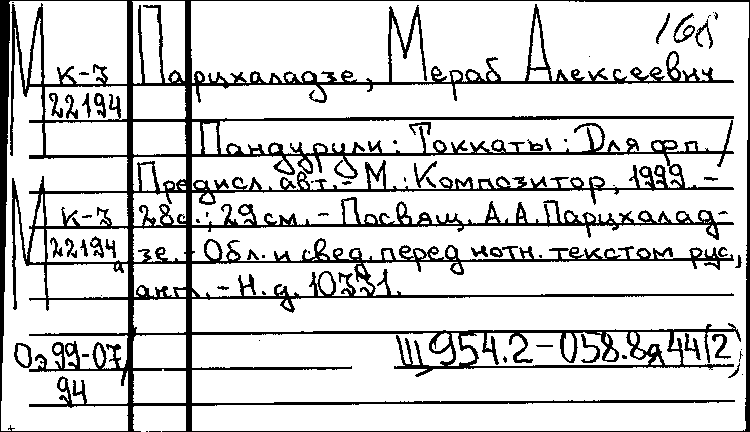 168
М Парцхаладзе, Мераб Алексеевич
К-3
22194
Пандурули: Токкаты: Для фп. /
Предисл. авт. - М.: Композитор, 1999. -
М К-3 28с.; 29см. - Посвящ. А.А. Парцхалад-
22194а зе. - Обл. и свед. перед нотн. текстом рус.,
англ. - Н.д. 10331.
Оэ 99-07/ Щ954.2-058.8я44(2)
94